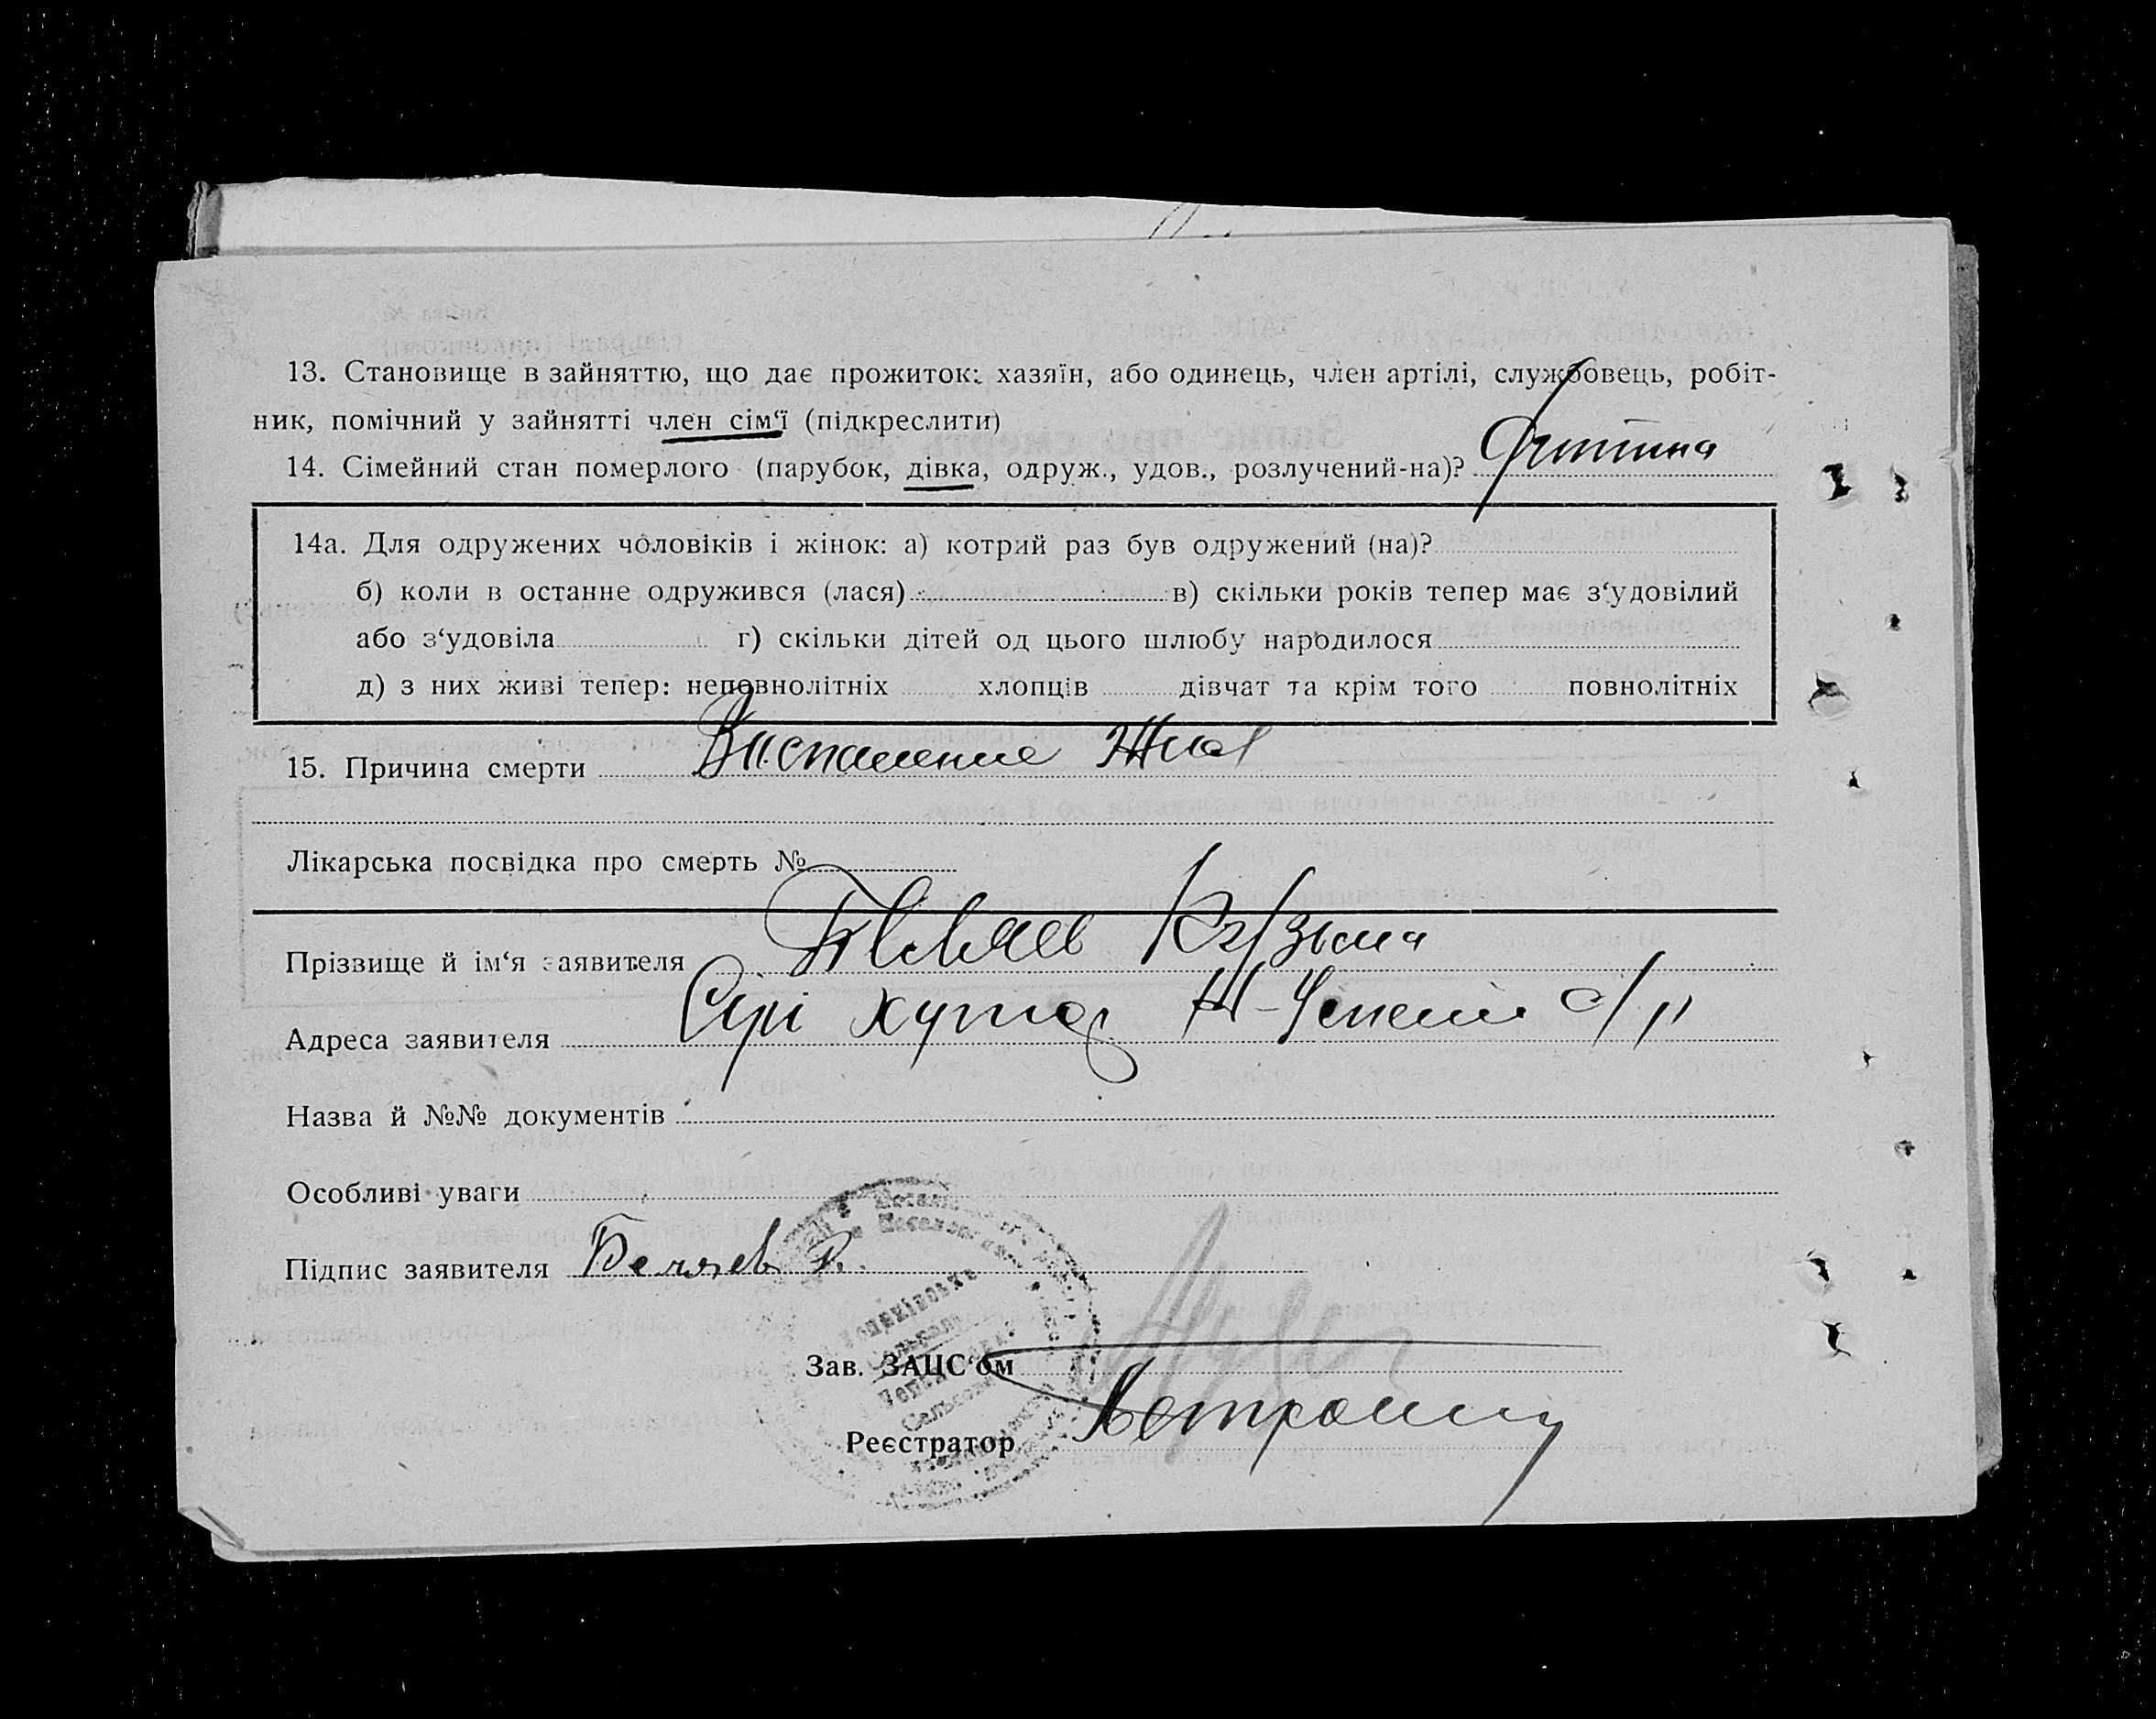 13. Становище в зайняттю, що дає прожиток: хазяїн, або одинець, член артілі, службовець, робіт-
ник, помічний у зайнятті член сім‘ї (підкреслити)
14. Сімейний стан померлого (парубок, дівка, одруж., удов., розлучений-на)? Дитина
14а. Для одружених чоловіків і жінок: а) котрий раз був одружений (на)?
б) коли в останне одружився (лася) в) скільки років тепер має з‘удовілий
або з‘удовіла г) скільки дітей од цього шлюбу народилося
д) з них живі тепер: неповнолітніх хлопців дівчат та крім того повнолітніх
15. Причина смерти
Лікарська посвідка про смерть №
Прізвище й ім‘я заявителя Беляев Кузьма
Адреса заявителя Сірі хутор с/р
Назва й №№ документів
Особливі уваги
Підпис заявителя Беляев
Зав. ЗАЦС‘ом
Реєстратор